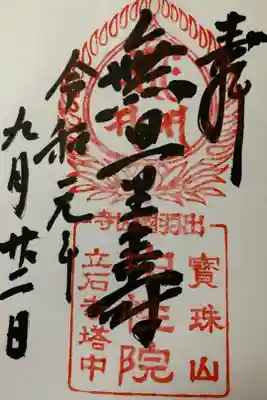 奉拝
無量壽
令和元年
九月廿二日
出羽國山寺
寶珠山
院
立石寺塔中